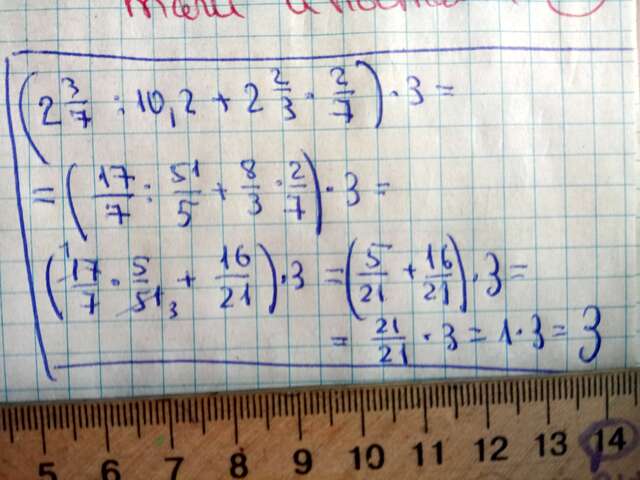 (2 3/7 : 10,2 + 2 2/3 · 2/7) · 3 =
= (17/7 : 51/5 + 8/3 · 2/7) · 3 =
(17/7 · 5/51 3 + 16/21) · 3 = (5/21 + 16/21) · 3 =
= 21/21 · 3 = 1 · 3 = 3
5 6 7 8 9 10 11 12 13 14